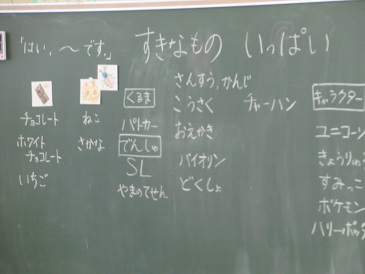 「はい、～です。」
すきなもの いっぱい
チョコレート
ホワイト
チョコレート
いちご
ねこ
さかな
くるま
パトカー
でんしゃ
SL
やまのてせん
さんすう、かんじ
こうさく
おえかき
バイオリン
どくしょ
チャーハン
キャラクター
ユニコーン
きょうりゅう
すみっこ
ポケモン
ハリーポッ